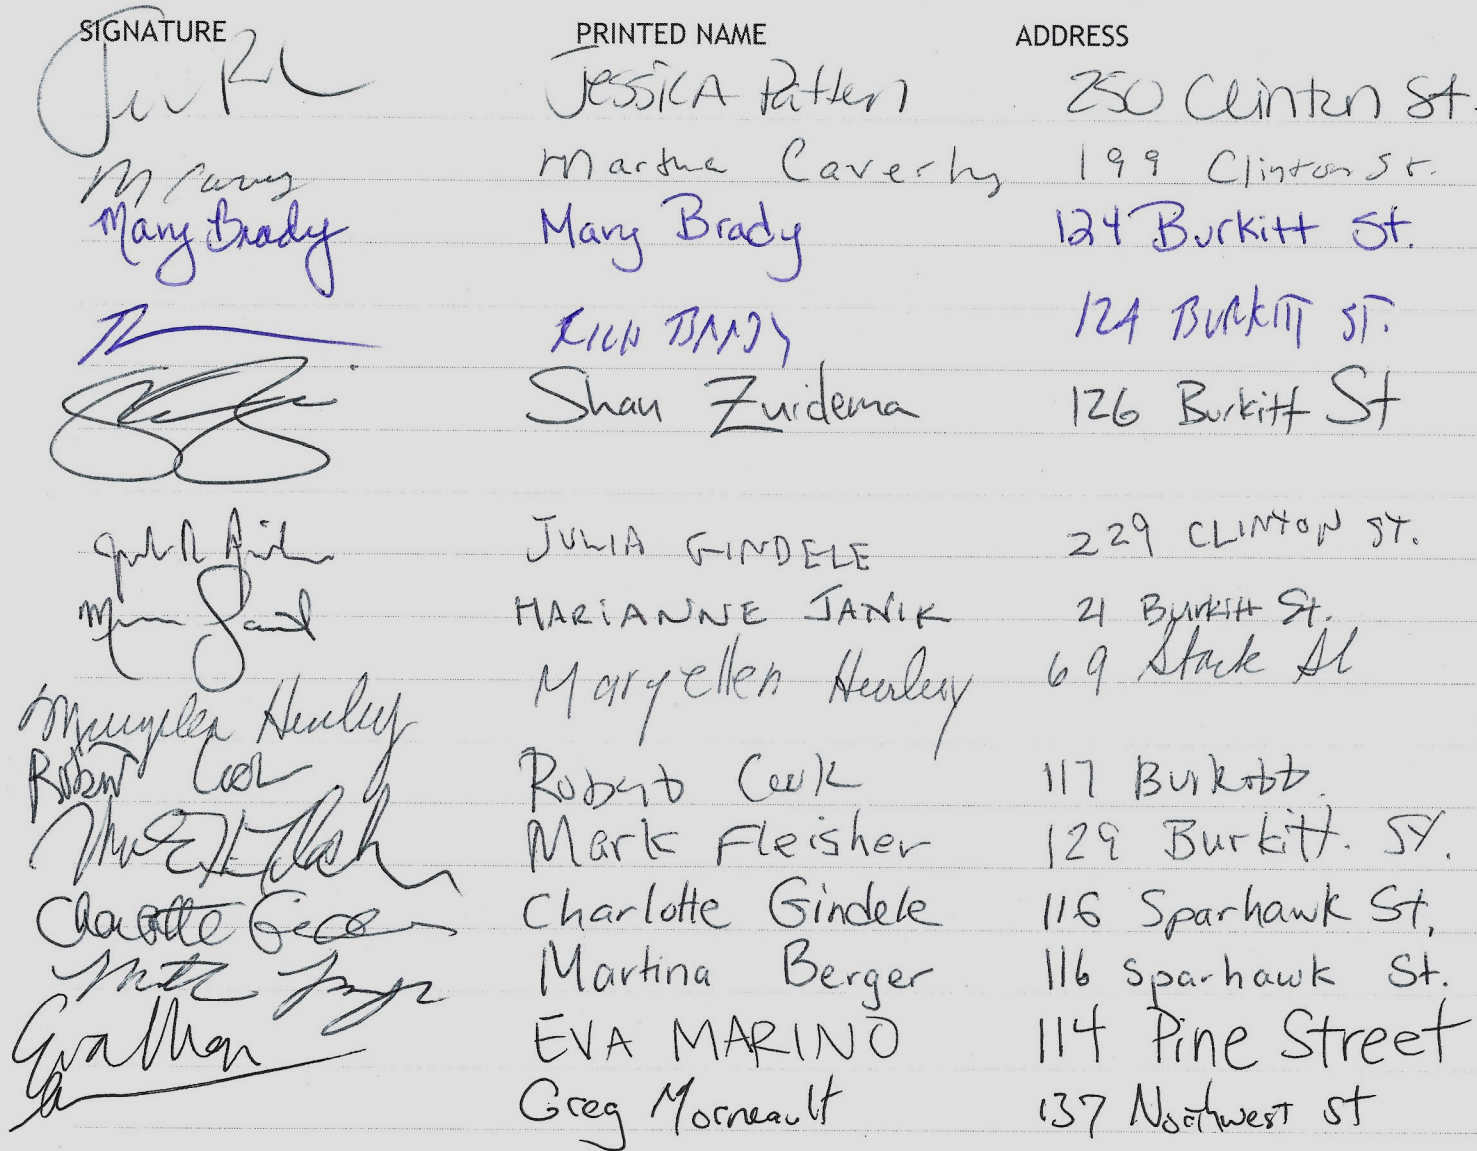 SIGNATURE PRINTED NAME ADDRESS
JESSICA Patten 250 Clinton St.
Martha Caverly 199 Clinton St.
Mary Brady Mary Brady 124 Burkitt St.
RICH BRADY 124 BURKITT ST.
Shan Zuidema 126 Burkitt St
JULIA GINDELE 229 CLINTON ST.
MARIANNE JANIK 21 Burkitt St.
Maryellen Hurley 69 Stark St
Maryellen Hurley
Robert Cook Robert Cook 117 Burkitt
Mark Fleisher 129 Burkitt. St.
Charlotte Charlotte Gindele 116 Sparhawk St,
Martina Berger 116 Sparhawk St.
Eva EVA MARINO 114 Pine Street
Greg Morneault 137 Northwest St